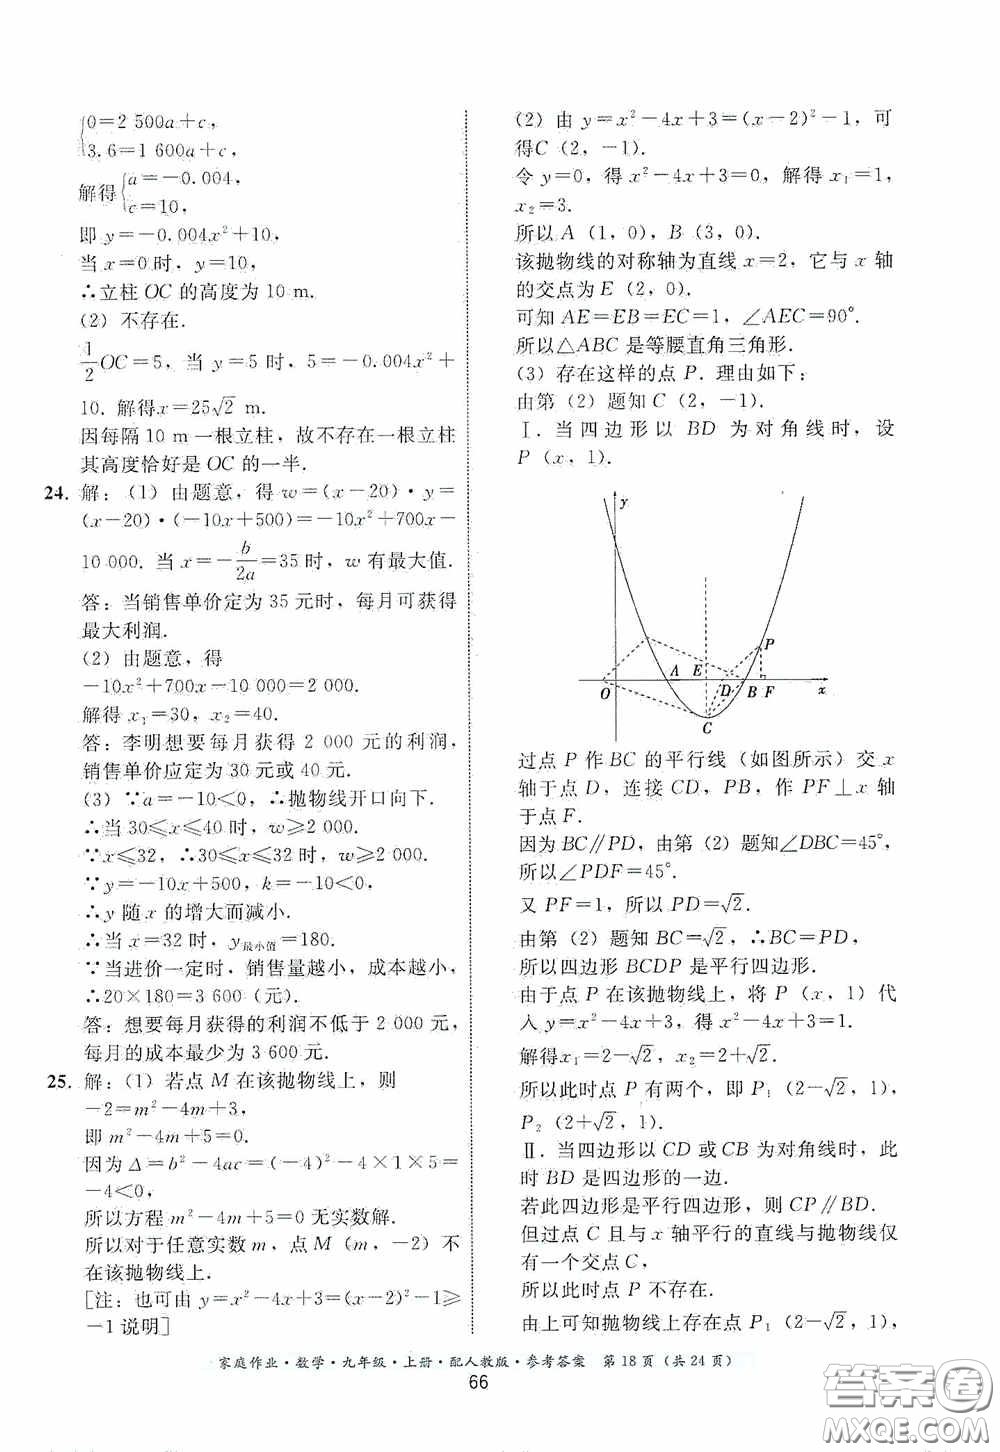 0=2 500a+c,
3.6=1 600a+c,
解得{a=-0.004,
c=10,
即 y=-0.004x²+10,
当 x=0 时, y=10,
∴立柱 OC 的高度为 10 m.
(2) 不存在.
1/2 OC=5, 当 y=5 时, 5=-0.004x²+
10. 解得 x=25√2 m.
因每隔 10 m 一根立柱, 故不存在一根立柱
其高度恰好是 OC 的一半.
24. 解: (1) 由题意, 得 w=(x-20)·y=
(x-20)·(-10x+500)=-10x²+700x-
10 000. 当 x=-b/2a=35 时, w 有最大值.
答: 当销售单价定为 35 元时, 每月可获得
最大利润.
(2) 由题意, 得
-10x²+700x-10 000=2 000.
解得 x₁=30, x₂=40.
答: 李明想要每月获得 2 000 元的利润,
销售单价应定为 30 元或 40 元.
(3) ∵a=-10<0, ∴抛物线开口向下.
∴当 30≤x≤40 时, w≥2 000.
∵x≤32, ∴30≤x≤32 时, w≥2 000.
∵y=-10x+500, k=-10<0,
∴y 随 x 的增大而减小.
∴当 x=32 时, y最小值=180.
∵当进价一定时, 销售量越小, 成本越小,
∴20×180=3 600 (元).
答: 想要每月获得的利润不低于 2 000 元,
每月的成本最少为 3 600 元.
25. 解: (1) 若点 M 在该抛物线上, 则
-2=m²-4m+3,
即 m²-4m+5=0.
因为 Δ=b²-4ac=(-4)²-4×1×5=
-4<0,
所以方程 m²-4m+5=0 无实数解.
所以对于任意实数 m, 点 M (m, -2) 不
在该抛物线上.
[注: 也可由 y=x²-4x+3=(x-2)²-1≥
-1 说明]
(2) 由 y=x²-4x+3=(x-2)²-1, 可
得 C (2, -1).
令 y=0, 得 x²-4x+3=0, 解得 x₁=1,
x₂=3.
所以 A (1, 0), B (3, 0).
该抛物线的对称轴为直线 x=2, 它与 x 轴
的交点为 E (2, 0).
可知 AE=EB=EC=1, ∠AEC=90°.
所以△ABC 是等腰直角三角形.
(3) 存在这样的点 P. 理由如下:
由第 (2) 题知 C (2, -1).
Ⅰ. 当四边形以 BD 为对角线时, 设
P (x, 1).
y
P
A E
O D B F x
C
过点 P 作 BC 的平行线 (如图所示) 交 x
轴于点 D, 连接 CD, PB, 作 PF⊥x 轴
于点 F.
因为 BC∥PD, 由第 (2) 题知∠DBC=45°,
所以∠PDF=45°.
又 PF=1, 所以 PD=√2.
由第 (2) 题知 BC=√2, ∴BC=PD,
所以四边形 BCDP 是平行四边形.
由于点 P 在该抛物线上, 将 P (x, 1) 代
入 y=x²-4x+3, 得 x²-4x+3=1.
解得x₁=2-√2, x₂=2+√2.
所以此时点 P 有两个, 即 P₁ (2-√2, 1),
P₂ (2+√2, 1).
Ⅱ. 当四边形以 CD 或 CB 为对角线时, 此
时 BD 是四边形的一边.
若此四边形是平行四边形, 则 CP∥BD.
但过点 C 且与 x 轴平行的直线与抛物线仅
有一个交点 C,
所以此时点 P 不存在.
由上可知抛物线上存在点 P₁ (2-√2, 1)
家庭作业·数学·九年级·上册·配人教版·参考答案 第 18 页 (共 24 页)
66
答案卷
MXQE.COM